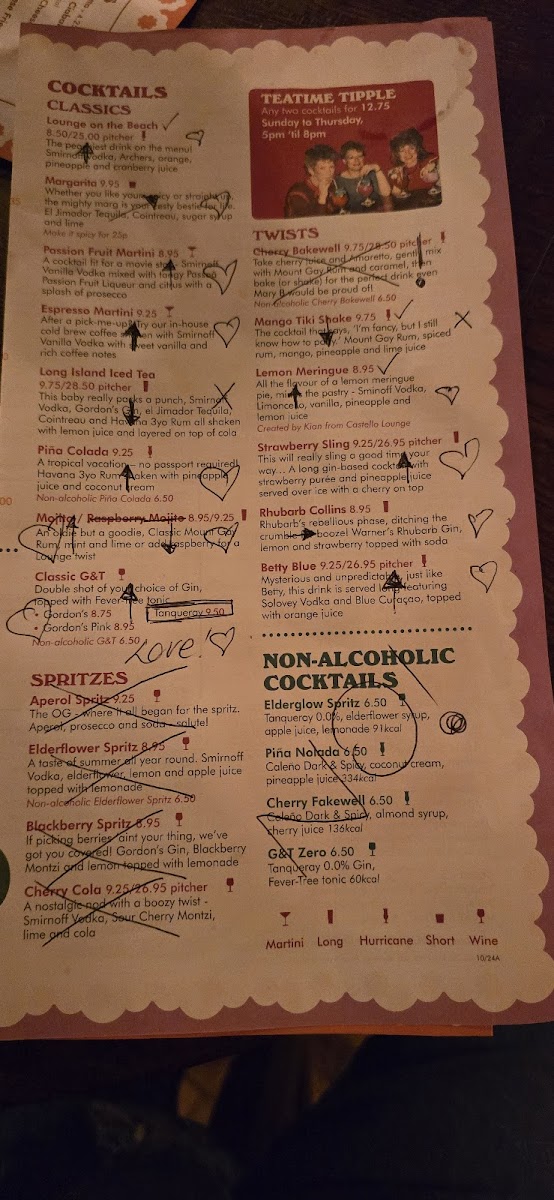 COCKTAILS
CLASSICS
Lounge on the Beach
8.50/25.00 pitcher
The peachiest drink on the menu!
Smirnoff Vodka, Archers, orange,
pineapple and cranberry juice
Margarita 9.95
Whether you like yours spicy or straight up,
the mighty marg is your zesty bestie for life.
El Jimador Tequila, Cointreau, sugar syrup
and lime
Make it spicy for 25p
Passion Fruit Martini 8.95
A cocktail fit for a movie star. Smirnoff
Vanilla Vodka mixed with tangy Passoã
Passion Fruit Liqueur and citrus with a
splash of prosecco
Espresso Martini 9.25
After a pick-me-up? Try our in-house
cold brew coffee shaken with Smirnoff
Vanilla Vodka with sweet vanilla and
rich coffee notes
Long Island Iced Tea
9.75/28.50 pitcher
This baby really packs a punch, Smirnoff
Vodka, Gordon's Gin, el Jimador Tequila,
Cointreau and Havana 3yo Rum all shaken
with lemon juice and layered on top of cola
Piña Colada 9.25
A tropical vacation - no passport required!
Havana 3yo Rum shaken with pineapple
juice and coconut cream
Non-alcoholic Piña Colada 6.50
Mojito / Raspberry Mojito 8.95/9.25
An oldie but a goodie, Classic Mount Gay
Rum, mint and lime or add raspberry for a
Lounge twist
Classic G&T
Double shot of your choice of Gin,
topped with Fever-Tree tonic
• Gordon's 8.75
Tanqueray 9.50
• Gordon's Pink 8.95
Non-alcoholic G&T 6.50
LOVE!
SPRITZES
Aperol Spritz 9.25
The OG - where it all began for the spritz.
Aperol, prosecco and soda - salute!
Elderflower Spritz 8.95
A taste of summer all year round. Smirnoff
Vodka, elderflower, lemon and apple juice
topped with lemonade
Non-alcoholic Elderflower Spritz 6.50
Blackberry Spritz 8.95
If picking berries ain't your thing, we've
got you covered! Gordon's Gin, Blackberry
Montzi and lemon topped with lemonade
Cherry Cola 9.25/26.95 pitcher
A nostalgic nod with a boozy twist -
Smirnoff Vodka, Sour Cherry Montzi,
lime and cola
TEATIME TIPPLE
Any two cocktails for 12.75
Sunday to Thursday,
5pm 'til 8pm
TWISTS
Cherry Bakewell 9.75/28.50 pitcher
Take cherry juice and Amaretto, gently mix
with Mount Gay Rum and caramel, then
bake (or shake) for the perfect drink even
Mary B would be proud of!
Non-alcoholic Cherry Bakewell 6.50
Mango Tiki Shake 9.75
The cocktail that says, 'I'm fancy, but I still
know how to party.' Mount Gay Rum, spiced
rum, mango, pineapple and lime juice
Lemon Meringue 8.95
All the flavour of a lemon meringue
pie, minus the pastry - Smirnoff Vodka,
Limoncello, vanilla, pineapple and
lemon juice
Created by Kian from Castello Lounge
Strawberry Sling 9.25/26.95 pitcher
This will really sling a good time your
way... A long gin-based cocktail with
strawberry purée and pineapple juice
served over ice with a cherry on top
Rhubarb Collins 8.95
Rhubarb's rebellious phase, ditching the
crumble for booze! Warner's Rhubarb Gin,
lemon and strawberry topped with soda
Betty Blue 9.25/26.95 pitcher
Mysterious and unpredictable, just like
Betty, this drink is served long featuring
Solovey Vodka and Blue Curaçao, topped
with orange juice
NON-ALCOHOLIC
COCKTAILS
Elderglow Spritz 6.50
Tanqueray 0.0%, elderflower syrup,
apple juice, lemonade 91kcal
Piña Nolada 6.50
Caleño Dark & Spicy, coconut cream,
pineapple juice 334kcal
Cherry Fakewell 6.50
Caleño Dark & Spicy, almond syrup,
cherry juice 136kcal
G&T Zero 6.50
Tanqueray 0.0% Gin,
Fever-Tree tonic 60kcal
Martini Long Hurricane Short Wine
10/24A